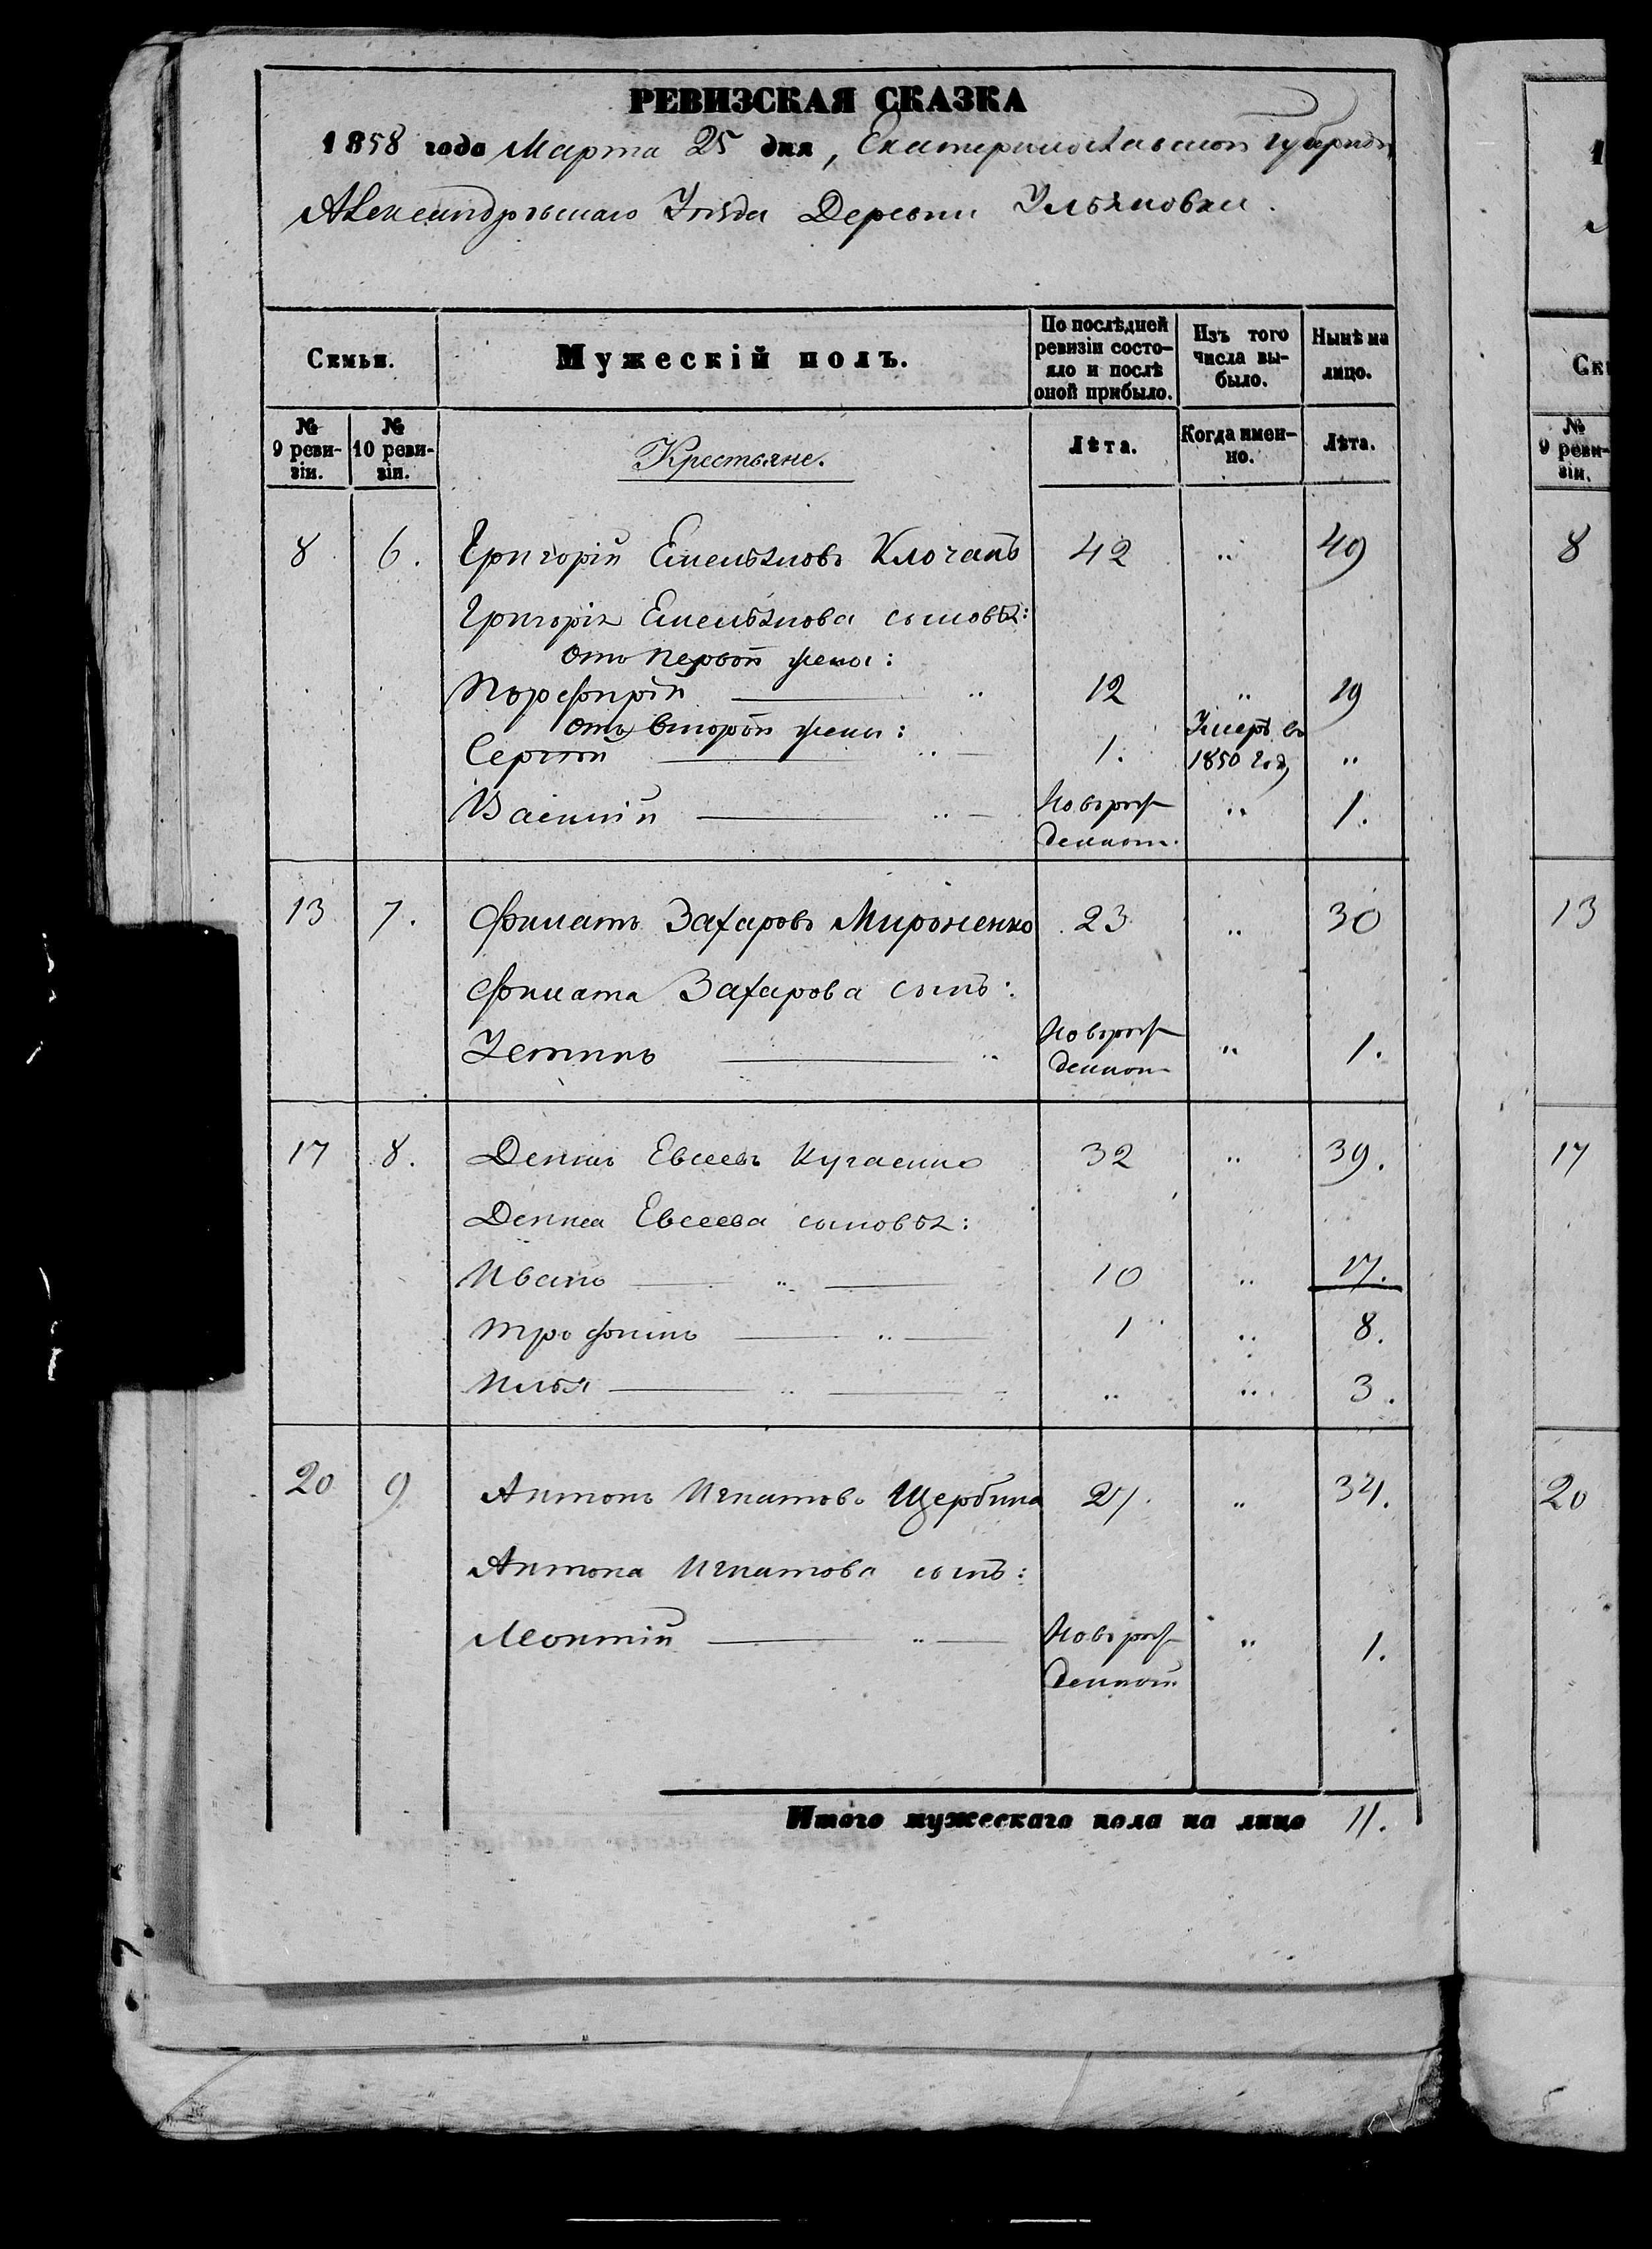 РЕВИЗСКАЯ СКАЗКА
1858 года Марта 25 дня, Екатеринославской Губерніи
Александровскаго Уѣзда Деревни Ульяновки.
Семьи.
Мужескій полъ.
По послѣдней ревизіи состояло и послѣ оной прибыло.
Изъ того числа выбыло.
Нынѣ на лицо.
№ 9 ревизіи.
№ 10 ревизіи.
Крестьяне.
Лѣта.
Когда именно.
Лѣта.
8 6. Григорій Емельяновъ Клочанъ 42 „ 49
Григорія Емельянова сыновья:
отъ первой жены:
Порфирій — „ 12 „ 19
отъ второй жены:
Сергѣй — „ — 1. Умеръ въ 1850 год „
Василій — „ — Новорож-
денной. „ 1.
13 7. Филатъ Захаровъ Мироненко 23 „ 30
Филата Захарова сынъ:
Устинъ — „ Новорож-
денной „ 1.
17 8. Денисъ Евсеевъ Кугаенко 32 „ 39.
Дениса Евсеева сыновья:
Иванъ — „ — 10 „ 17.
Трофимъ — „ — 1 „ 8.
Илья — „ — „ „ 3.
20 9 Антонъ Игнатовъ Щербина 27. „ 34.
Антона Игнатова сынъ:
Леонтій — „ — Новорож-
денной „ 1.
Итого мужескаго пола на лицо 11.
1
Се
№ 9 ревизіи.
8
13
17
20